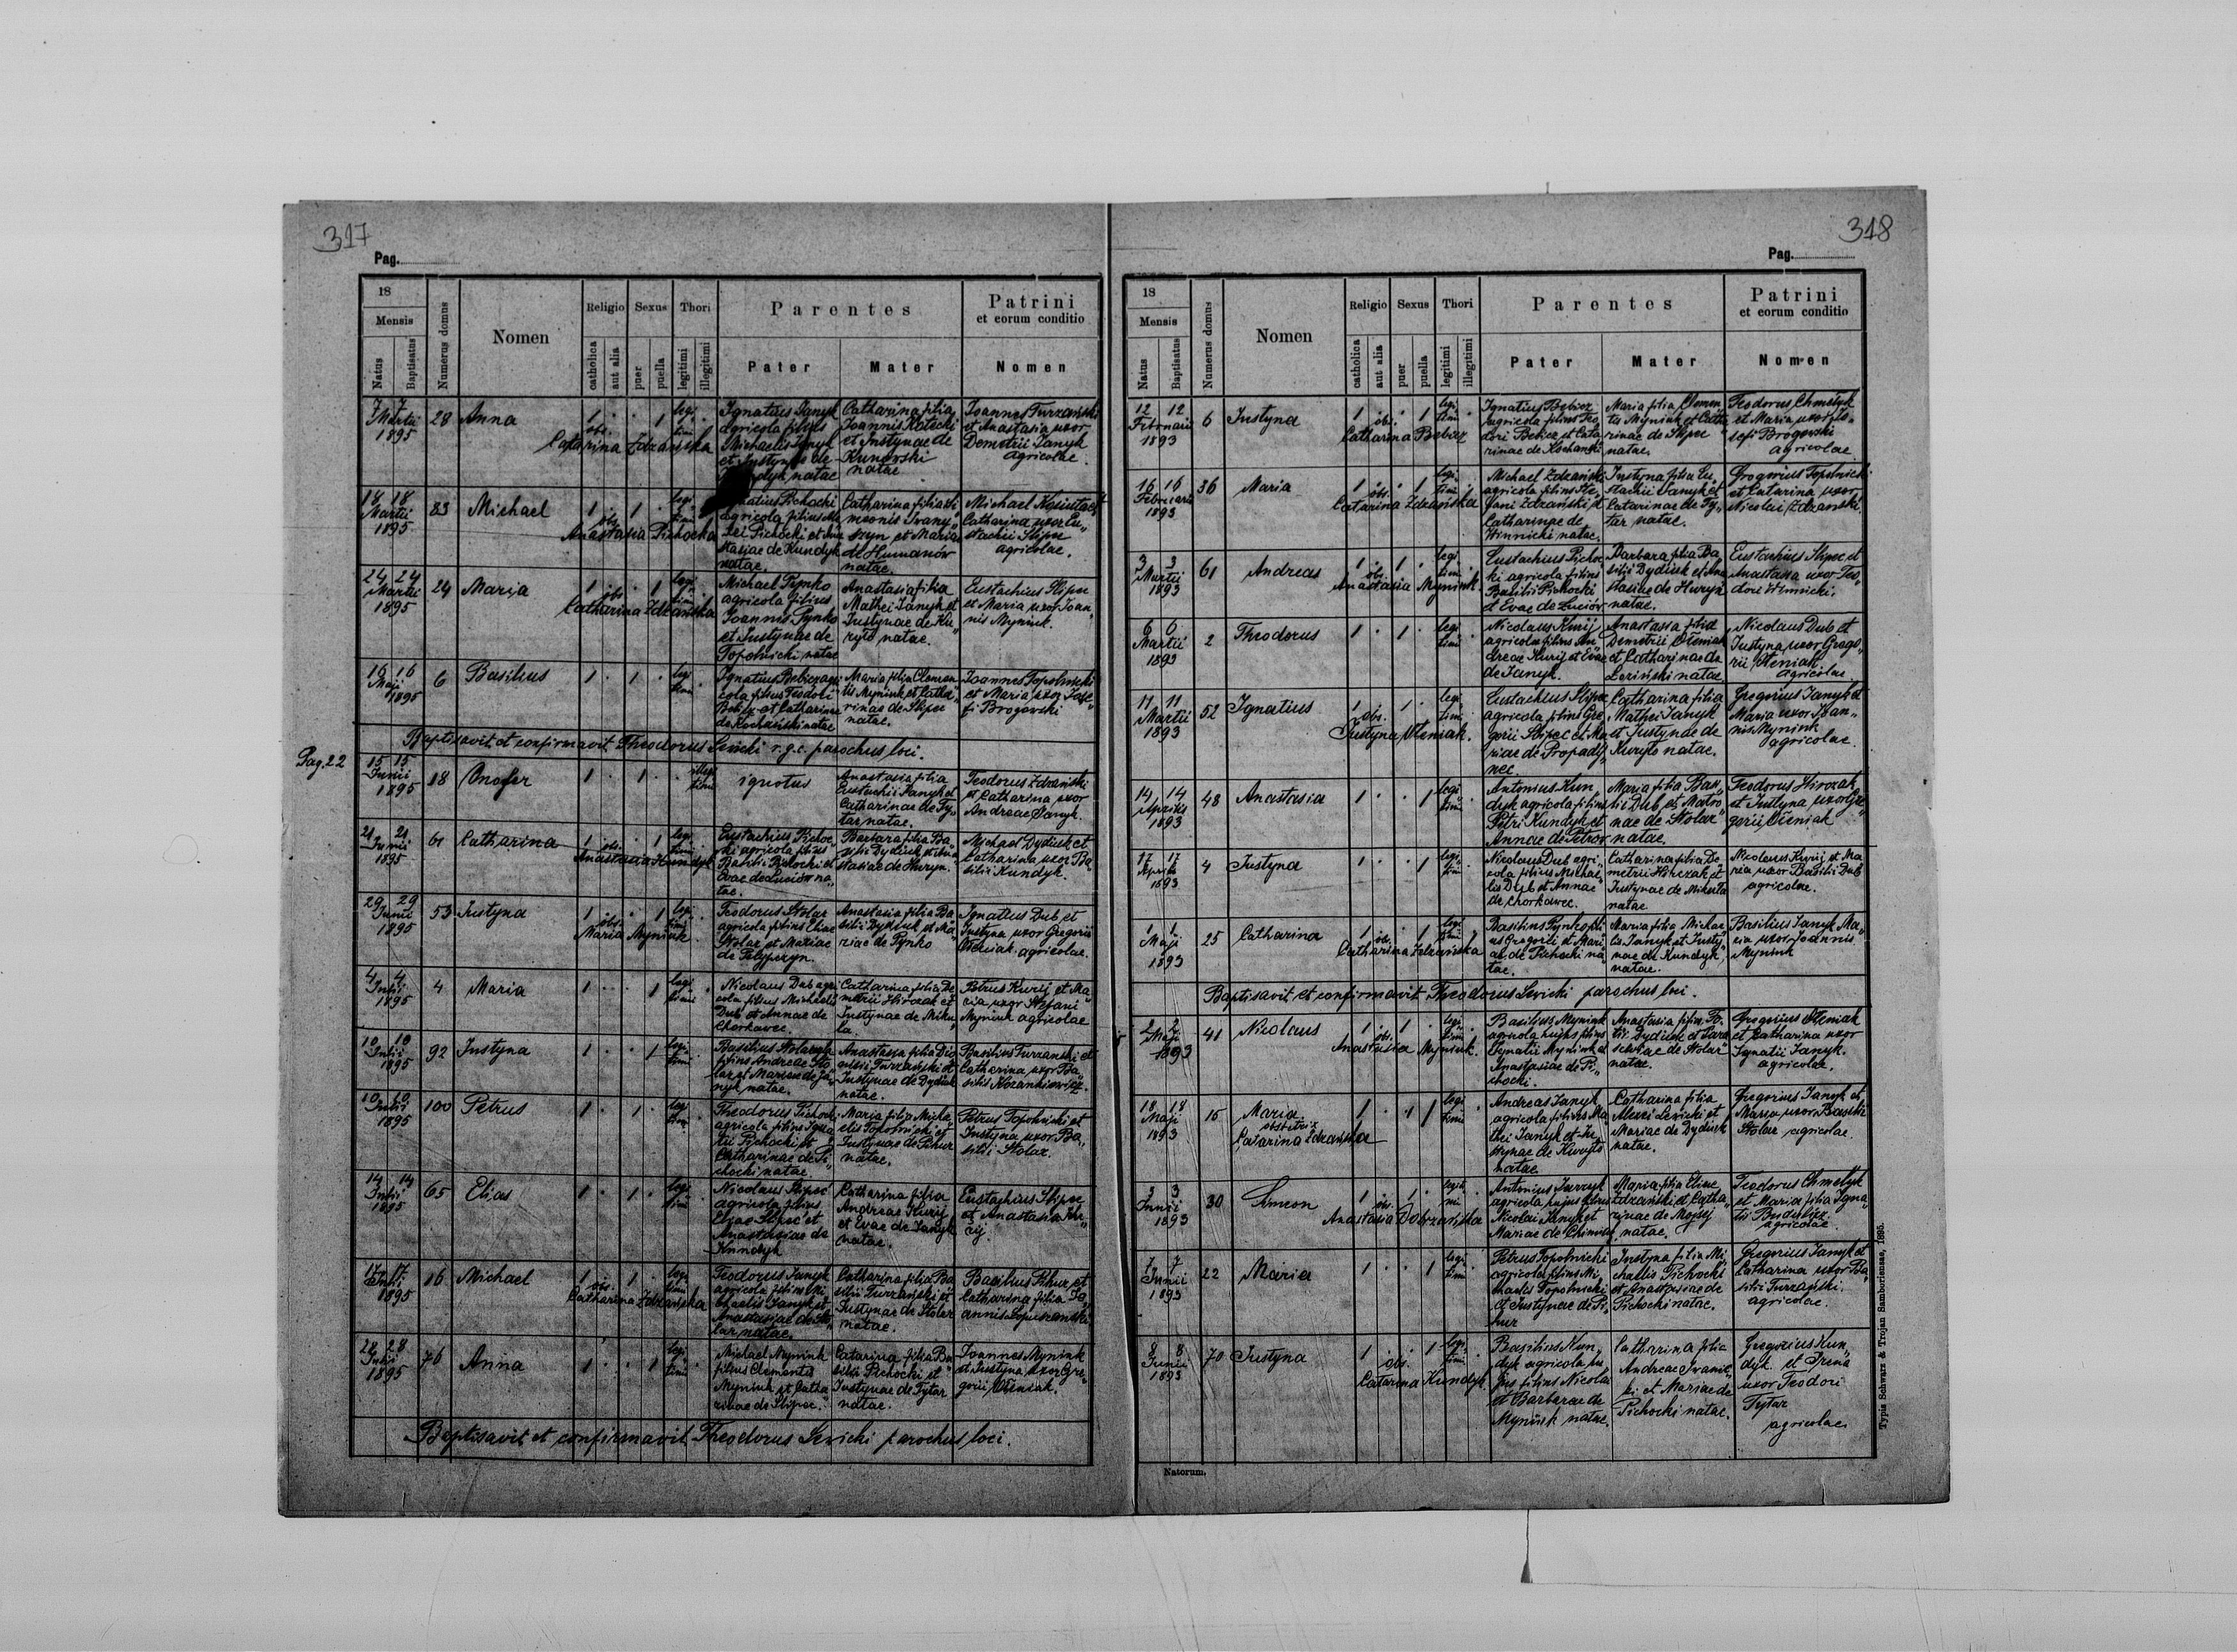 317
Pag.
18
Mensis
Natus
Baptisatus
Numerus domus
Nomen
Religio
catholica
aut alia
Sexus
puer
puella
Thori
legitimi
illegitimi
Parentes
Pater
Mater
Patrini
et eorum conditio
Nomen
7 7
Martii
1895
28 Anna
1 . . 1 legi
timi .
obs.
Catarina Zdzańska
Ignatius Janyk
agricola filius
Michaelis Janyk
et Justynae de
natae
Catharina filia
Joannis Katecki
et Justynae de
Kunowski
natae
Joannes Turzański
et Anastasia uxor
Demetrii Janyk
agricolae.
18 18
Martii
1895
83 Michael
1 . 1 . legi
timi
obs.
Anastasia Pichocka
Pichocki
agricola filius
Pichocki et Ana
stasiae de Kundyk
natae.
Catharina filia Si
meonis Iwany
szyn et Maria
de Humanów
natae.
Michael
Catharina uxor Eu
stachii Slipec
agricolae.
24 24
Martii
1895
24 Maria
1 . . 1 legi
timi
obs.
Catharina Zdzańska
Michael Pynko
agricola filius
Joannis Pynko
et Justynae de
Topolnicki natae
Anastasia filia
Mathei Janyk et
Justynae de Ku
ryło natae.
Eustachius Slipec
et Maria uxor Joan
nis Myniuk.
16 16
Maji
1895
6 Basilius
1 . 1 . legi
timi .
Ignatius Bebiez agri
cola filius Teodori
Bebiez et Catharinae
de Kochański natae
Maria filia Clemen
tis Myniuk et Catha
rinae de Slipec
natae.
Joannes Topolnicki
et Maria uxor Jose
fi Brogowski
Baptisavit et confirmavit Theodorus Lewicki r.g.c. parochus loci.
Pag. 22
15 15
Junii
1895
18 Onofer
1 . 1 . . illegi
timi
ignotus
Anastasia filia
Eustachii Janyk et
Catharinae de Ty
tar natae.
Teodorus Zdzański
et Catharina uxor
Andreae Janyk.
21 21
Junii
1895
61 Catharina
1 . . 1 legi
timi .
obs.
Anastasia Kundyk
Eustachius Pichoc
ki agricola filius
Basilii Pichocki et
Evae de Luciów na
tae.
Barbara filia Ba
silii Dydiuk et Ana
stasiae de Huryn.
Michael Dydiuk et
Catharina uxor Ba
silii Kundyk.
29 29
Junii
1895
53 Justyna
1 . . 1 legi
timi .
obs.
Maria Myniuk
Teodorus Stolar
agricola filius Eliae
Stolar et Mariae
de
Anastasia filia Ba
silii Dydiuk et Ma
riae de Pynko
Ignatius Dub et
Justyna uxor Gregorii
Oleniak agricolae.
4 4
Julii
1895
4 Maria
1 . . 1 legi
timi
Nicolaus Dub agri
cola filius Michaelis
Dub et Annae de
Chorkawec.
Catharina filia De
metrii Hirczak et
Justynae de Miku
la
Petrus Kurij et Ma
ria uxor Stefani
Myniuk agricolae
10 10
Julii
1895
92 Justyna
1 . . 1 legi
timi
Basilius Stolar agr.
filius Andreae Sto
lar et Mariae de Ja
nyk natae.
Anastasia filia Dio
nisii Turzański et
Justynae de Dydiuk
natae.
Basilius Turzanski et
Catharina uxor Ba
silii
10 10
Julii
1895
100 Petrus
1 . 1 . legi
timi .
Theodorus Pichocki
agricola filius Igna
tii Pichocki et
Catharinae de Pi
chocki natae
Maria filia Micha
elis Topolnicki et
Justynae de Pihur
natae.
Petrus Topolnicki et
Justyna uxor Ba
silii Stolar.
14 14
Julii
1895
65 Elias
1 . 1 . legi
timi
Nicolaus Slipec
agricola filius
Eliae Slipec et
Anastasiae de
Kundyk
Catharina filia
Andreae Kurij
et Evae de Janyk
natae.
Eustachius Slipec
et Anastasia Ku
rij.
17 17
Julii
1895
16 Michael
1 . 1 . legi
timi .
obs.
Catharina Zdzańska
Teodorus Janyk
agricola filius Mi
chaelis Janyk et
Anastasiae de Sto
lar natae.
Catharina filia Ba
silii Turzański et
Justynae de Stolar
natae.
Basilius Pihur et
Catharina filia Jo
annis Łopuszanski
28 28
Julii
1895
76 Anna
1 . . 1 legi
timi .
Michael Myniuk
filius Clementis
Myniuk et Catha
rinae de Slipec.
Catarina filia Ba
silii Pichocki et
Justynae de Tytar
natae.
Joannes Myniuk
et Justyna uxor Gre
gorii Oleniak.
Baptisavit et confirmavit Theodorus Lewicki parochus loci.
318
Pag.
18
Mensis
Natus
Baptisatus
Numerus domus
Nomen
Religio
catholica
aut alia
Sexus
puer
puella
Thori
legitimi
illegitimi
Parentes
Pater
Mater
Patrini
et eorum conditio
Nomen
12 12
Februarii
1893
6 Justyna
1 . . 1 legi
timi .
obs.
Catharina Bebiez
Ignatius Bebiez
agricola filius Teo
dori Bebiez et Cata
rinae de Kochański
Maria filia Clemen
tis Myniuk et Catha
rinae de Slipec
natae.
Teodorus Chmetyk
et Maria uxor Jo
sefi Brogowski
agricolae
16 16
Februarii
1893
36 Maria
1 . . 1 legi
timi .
obs.
Catarina Zdzańska
Michael Zdzański
agricola filius Ste
fani Zdzański et
Catharinae de
Winnicki natae.
Justyna filia Eu
stachii Janyk et
Catarinae de Ty
tar natae.
Gregorius Topolnicki
et Catarina uxor
Nicolai Zdzanski.
3 3
Martii
1893
61 Andreas
1 . 1 . legi
timi .
obs.
Anastasia Myniuk.
Eustachius Pichoc
ki agricola filius
Basilii Pichocki
et Evae de Luciów
Barbara filia Ba
silii Dydiuk et Ana
stasiae de Huryn
natae.
Eustachius Slipec et
Anastasia uxor Teo
dori Winnicki.
6 6
Martii
1893
2 Theodorus
1 . 1 . legi
timi
Nicolaus Kurij
agricola filius An
dreae Kurij et Evae
de Janyk.
Anastasia filia
Demetrii Oleniak
et Catharinae de
Leziński natae.
Nicolaus Dub et
Justyna uxor Grego
rii Oleniak
agricolae
11 11
Martii
1893
52 Ignatius
1 . 1 . legi
timi .
obs.
Justyna Oleniak.
Eustachius Slipec
agricola filius Gre
gorii Slipec et Ma
riae de Propady
nec.
Catharina filia
Mathei Janyk
et Justynae de
Kuryło natae.
Gregorius Janyk et
Maria uxor Joan
nis Myniuk
agricolae.
14 14
Aprilis
1893
48 Anastasia
1 . . 1 legi
timi
Antonius Kun
dyk agricola filius
Petri Kundyk et
Annae de Petrow
Maria filia Basi
lii Dub et Matro
nae de Stolar
natae.
Teodorus Hirczak
et Justyna uxor Gre
gorii Oleniak
17 17
Aprilis
1893
4 Justyna
1 . . 1 legi
timi .
Nicolaus Dub agri
cola filius Michae
lis Dub et Annae
de Chorkawec.
Catharina filia De
metrii Hirczak et
Justynae de Mikula
natae
Nicolaus Kurij et Ma
ria uxor Basilii Dub
agricolae.
1 1
Maji
1893
25 Catharina
1 . . 1 legi
timi .
obs.
Catharina Zdzańska
Basilius Pynko fili
us Gregorii et Mari
ae de Pichocki na
tae.
Maria filia Michae
lis Janyk et Justy
nae de Kundyk
natae.
Basilius Janyk Ma
ria uxor Joannis
Myniuk
Baptisavit et confirmavit Theodorus Lewicki parochus loci.
2 2
Maji
1893
41 Nicolaus
1 . 1 . legi
timi .
obs.
Anastasia Myniuk.
Basilius Myniuk
agricola hujus filius
Ignatii Myniuk et
Anastasiae de Pi
chocki.
Anastasia filia
Dydiuk et Para
scevae de Stolar
natae.
Gregorius Oleniak
et Catharina uxor
Ignatii Janyk.
agricolae.
18 18
Maji
1893
15 Maria
1 . . 1 legi
timi
obstetrix
Catarina Zdzańska
Andreas Janyk
agricola filius Ma
thei Janyk et Ju
stynae de Kuryło
natae
Catharina filia
Alexei Lewicki et
Mariae de Dydiuk
natae.
Gregorius Janyk et
Maria uxor Basilii
Stolar agricolae.
3 3
Junii
1893
30 Simeon
1 . 1 . legiti
mi .
obs.
Anastasia Dobrzańska
Antonius Janyk
agricola hujus filius
Nicolai Janyk et
Mariae de
Maria filia Eliae
Zdzański et Catha
rinae de Mojsij
natae.
Teodorus Chmetyk
et Maria filia Igna
tii
agricolae.
7 7
Junii
1893
22 Maria
1 . . 1 legi
timi .
Petrus Topolnicki
agricola filius Mi
chaelis Topolnicki
et Justynae de Pi
hur
Justyna filia Mi
chaelis Pichocki
et Anastasiae de
Pichocki natae.
Gregorius Janyk et
Catharina uxor Ba
silii Turzański.
agricolae.
8 8
Junii
1893
70 Justyna
1 . . 1 legi
timi .
obs.
Catarina Kundyk
Basilius Kun
dyk agricola hu
jus filius Nicolai
et Barbarae de
Myniuk natae.
Catharina filia
Andreae Iwanic
ki et Mariae de
Pichocki natae.
Gregorius Kun
dyk et Irena
uxor Teodori
Tytar
agricolae
Natorum.
Typis Schwarz & Trojan Samboriensas, 1895.